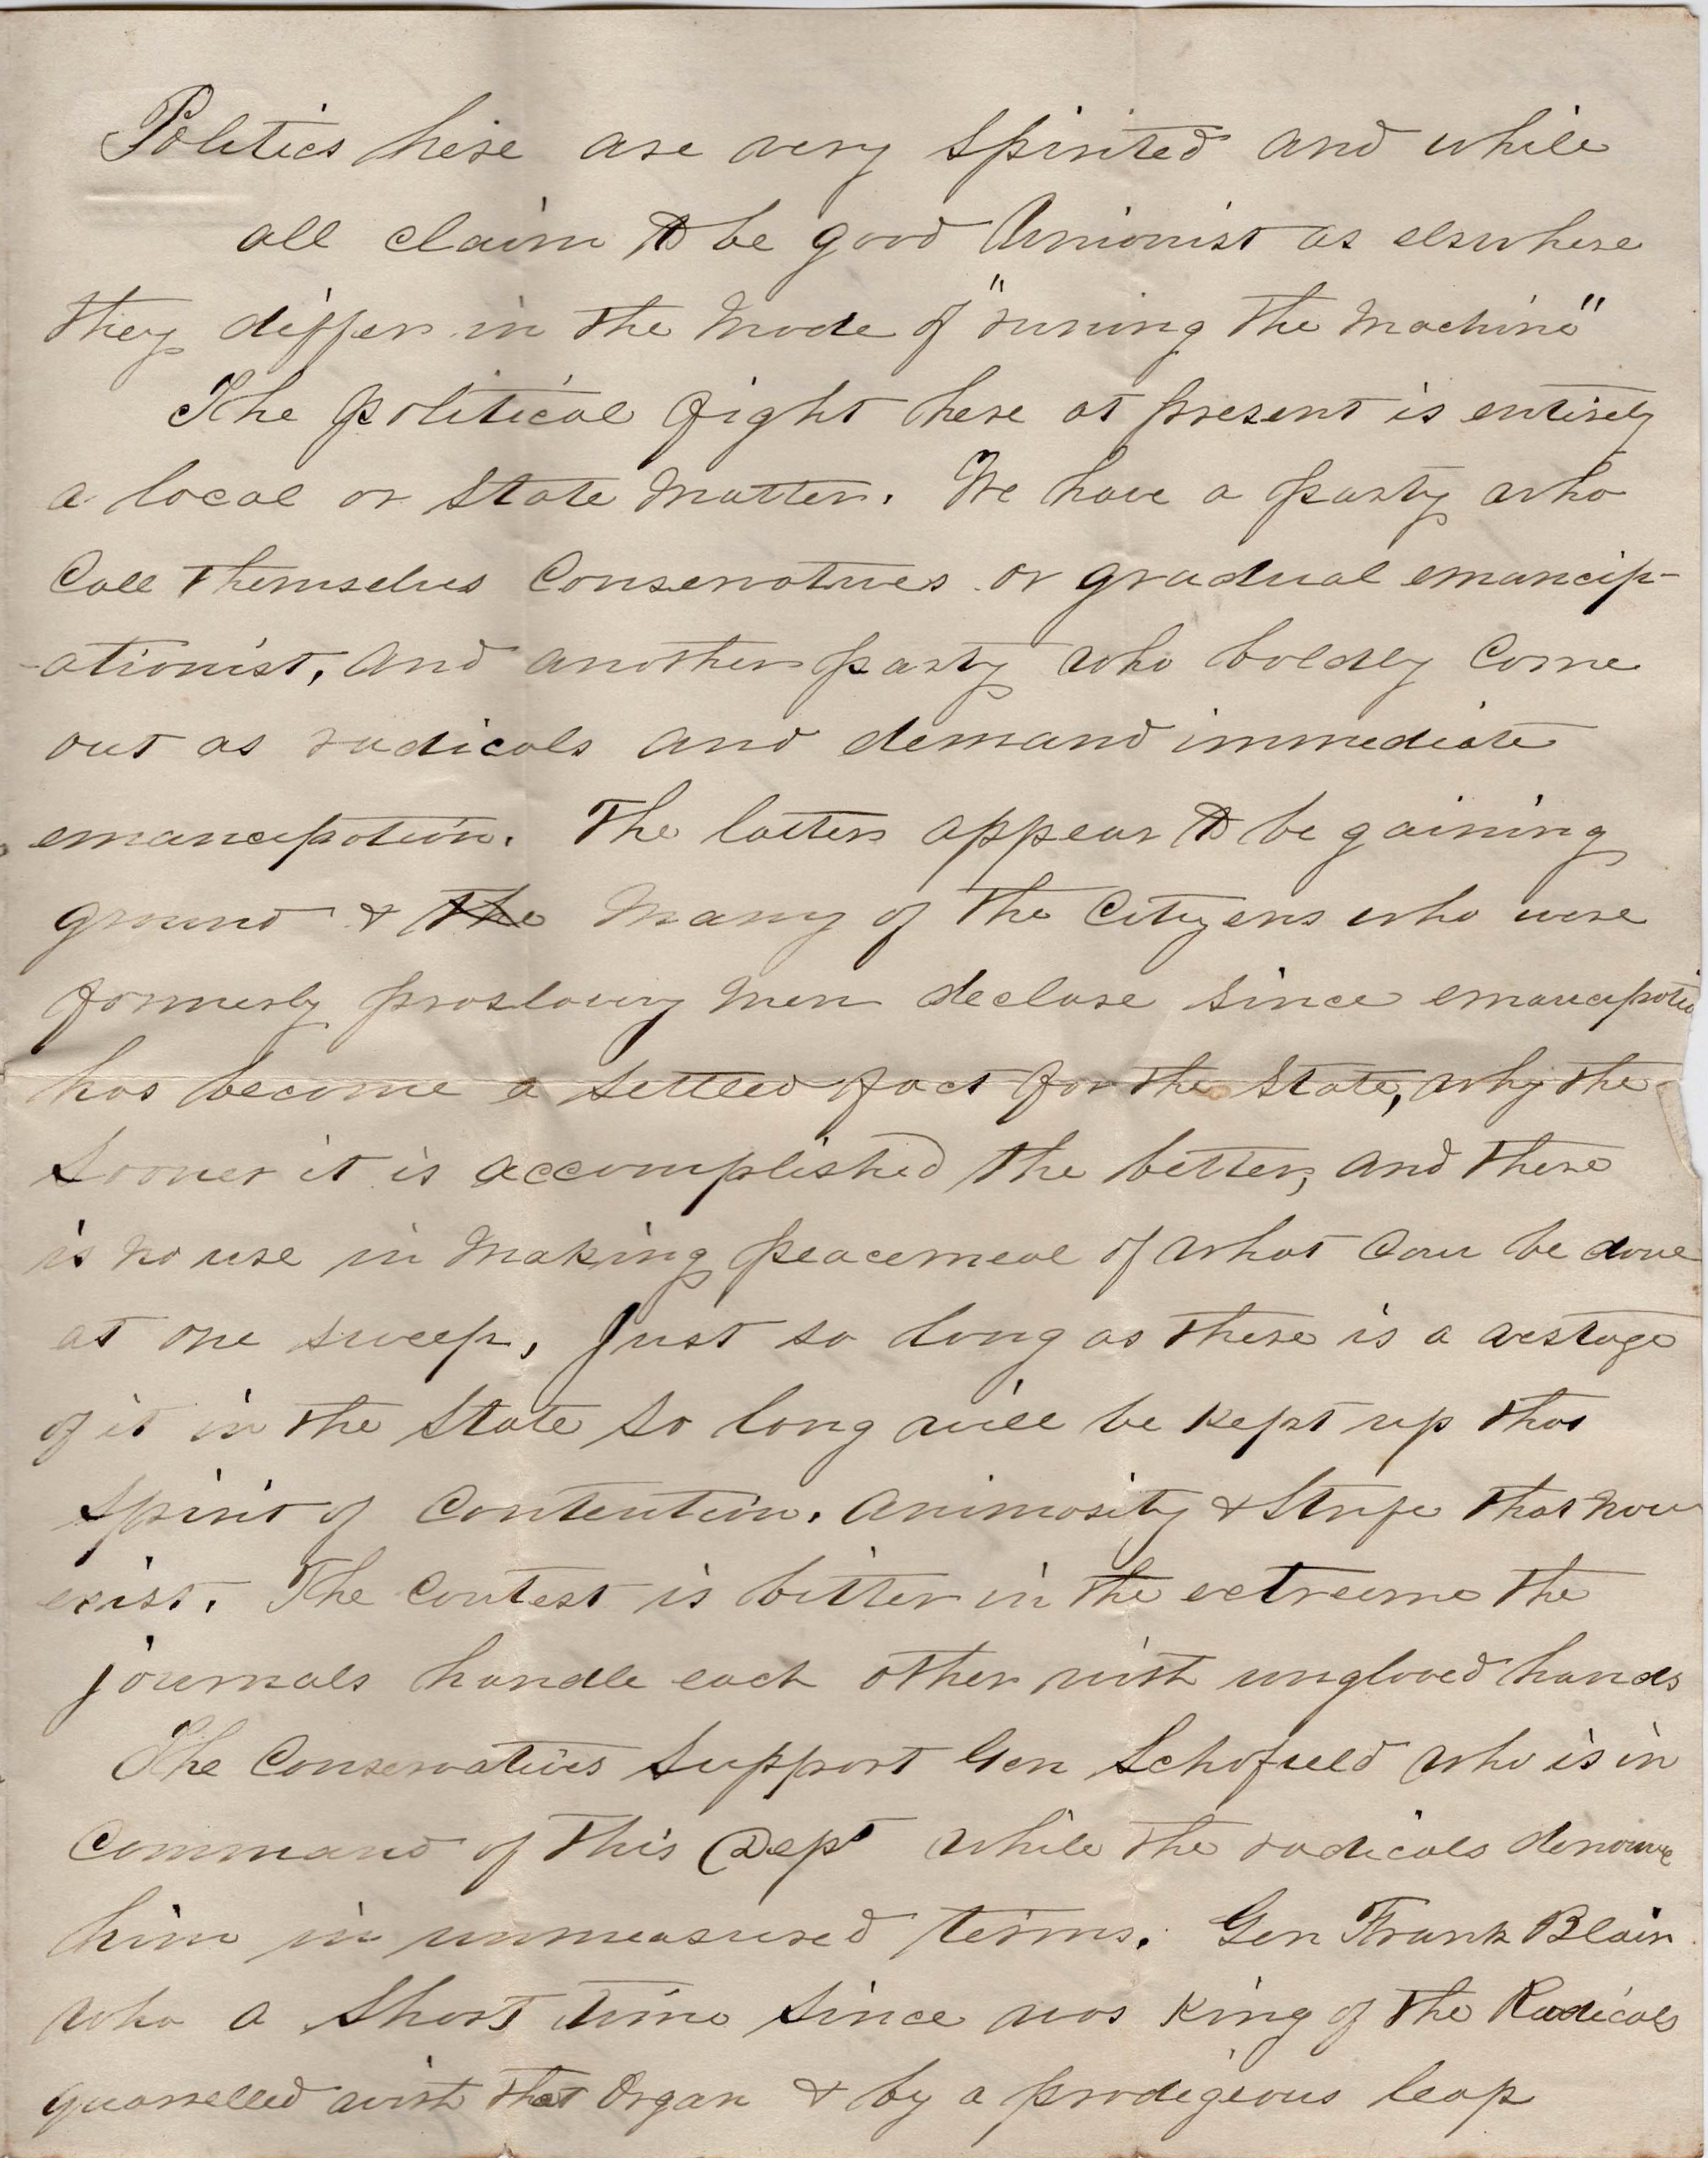 Politics here are very spirited and while
all claim to be good Unionist as elswhere
they differ in the mode of "runing the machine"
The political fight here at present is entirely
a local or State matter. We have a party who
call themselves Conservatives or gradual emancip-
-ationist, and another party who boldly come
out as radicals and demand immediate
emancipation. The latter appear to be gaining
ground & the many of the Citizens who were
formerly proslavery men declare since emancipatio
has become a settled fact for the State, why the
sooner it is accomplished the better, and there
is no use in making peacemeal of what can be done
at one sweep, Just so long as there is a vestage
of it in the State so long will be kept up that
spirit of contention. animosity & strife that now
exist. The contest is bitter in the extreeme the
journals handle each other with ungloved hands
The Conservatives support Gen Schofield who is in
command of this Dept while the radicals denounce
him in unmeasured terms. Gen Frank Blair
who a short time since was King of the Radicals
quarrelled with that Organ & by a prodigeous leap